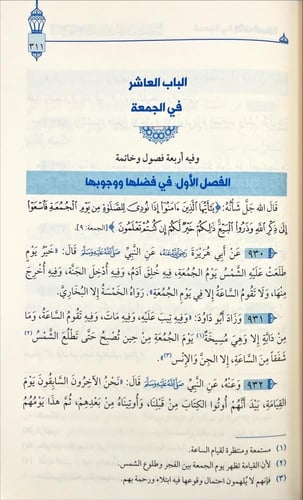 ٣١١
الباب العاشر
في الجمعة
وفيه أربعة فصول وخاتمة
الفصل الأول: في فضلها ووجوبها
قَالَ اللهُ جَلَّ شَأْنُهُ: ﴿يَٰٓأَيُّهَا ٱلَّذِينَ ءَامَنُوٓاْ إِذَا نُودِيَ لِلصَّلَوٰةِ مِن يَوۡمِ ٱلۡجُمُعَةِ فَٱسۡعَوۡاْ
إِلَىٰ ذِكۡرِ ٱللَّهِ وَذَرُواْ ٱلۡبَيۡعَۚ ذَٰلِكُمۡ خَيۡرٞ لَّكُمۡ إِن كُنتُمۡ تَعۡلَمُونَ﴾ [الجمعة: ٩].
٩٣٠ عَنْ أَبِي هُرَيْرَةَ رَضِيَ اللهُ عَنْهُ، عَنِ النَّبِيِّ ﷺ قَالَ: «خَيْرُ يَوْمٍ
طَلَعَتْ عَلَيْهِ الشَّمْسُ يَوْمُ الجُمُعَةِ، فِيهِ خُلِقَ آدَمُ، وَفِيهِ أُدْخِلَ الجَنَّةَ، وَفِيهِ أُخْرِجَ
مِنْهَا، وَلَا تَقُومُ السَّاعَةُ إِلَّا فِي يَوْمِ الجُمُعَةِ». رَوَاهُ الخَمْسَةُ إِلَّا البُخَارِيَّ.
٩٣١ وَزَادَ أَبُو دَاوُدَ: «وَفِيهِ تِيبَ عَلَيْهِ، وَفِيهِ مَاتَ، وَفِيهِ تَقُومُ السَّاعَةُ، وَمَا
مِنْ دَابَّةٍ إِلَّا وَهِيَ مُسِيخَةٌ(١) يَوْمَ الجُمُعَةِ مِنْ حِينِ تُصْبِحُ حَتَّى تَطْلُعَ الشَّمْسُ(٢)
شَفَقًا مِنَ السَّاعَةِ، إِلَّا الجِنَّ وَالإِنْسَ»(٣).
٩٣٢ وَعَنْهُ، عَنِ النَّبِيِّ ﷺ قَالَ: «نَحْنُ الآخِرُونَ السَّابِقُونَ يَوْمَ
القِيَامَةِ، بَيْدَ أَنَّهُمْ أُوتُوا الكِتَابَ مِنْ قَبْلِنَا، وَأُوتِينَاهُ مِنْ بَعْدِهِمْ، ثُمَّ هَذَا يَوْمُهُمُ
(١) مستمعة ومنتظرة لقيام الساعة.
(٢) لأن القيامة تظهر يوم الجمعة بين الفجر وطلوع الشمس.
(٣) فإنهم لا يُلهمون احتمال وقوعها فيه ابتلاء ورحمة بهم.